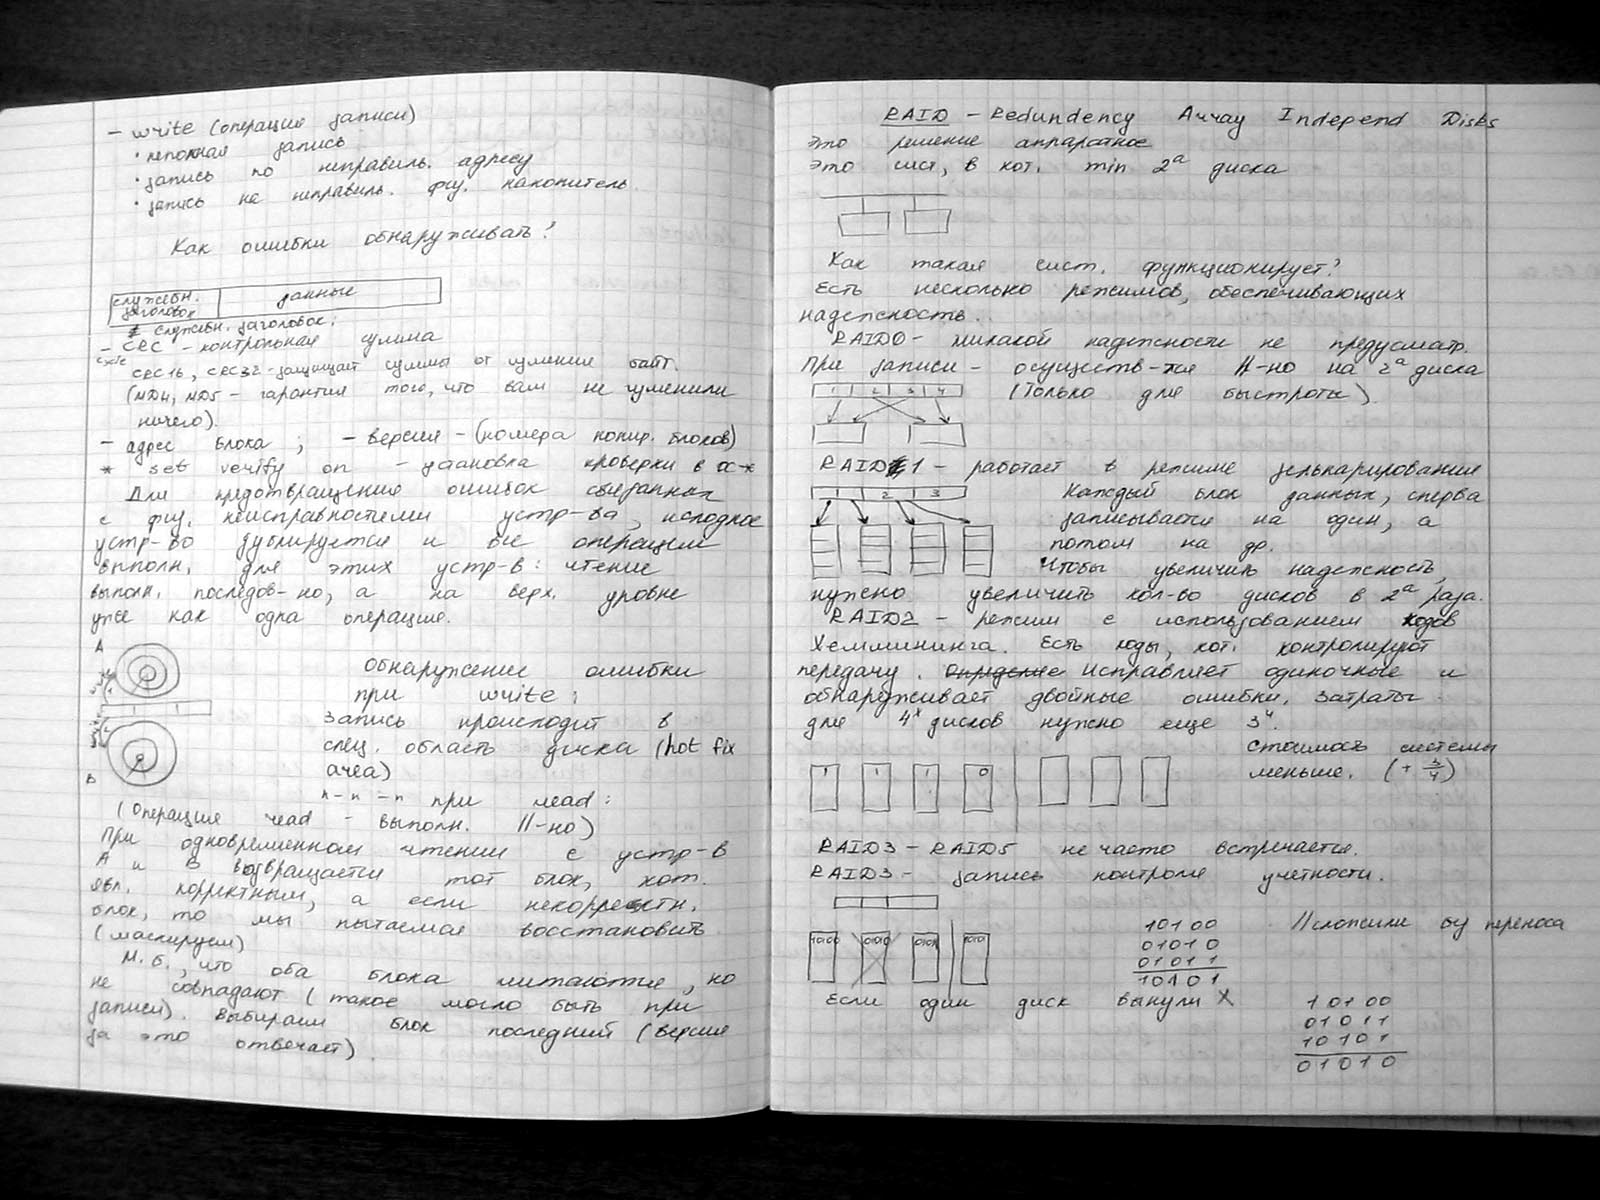 - write (операция записи)
· неполная запись
· запись по неправиль. адресу
· запись на неправиль. физ. накопитель
Как ошибки обнаруживать?
служебн. заголовок данные
служебн. заголовок:
- CRC - контрольная сумма
cycle CRC16, CRC32 - защищает суммы от изменения байт.
(MD4, MD5 - гарантия того, что вам не изменили
ничего).
- адрес блока ; - версия - (номера копир. блоков)
* set verify on - установка проверки в ОС-х
Для предотвращения ошибок связанных
с физ. неисправностями устр-ва, исходное
устр-во дублируется и все операции
выполн. для этих устр-в: чтение
выполн. последов-но, а на верх. уровне
уже как одна операция.
A
B
Обнаружение ошибки
при write:
Запись происходит в
спец. область диска (hot fix
area)
"- " -" при read:
(Операция read - выполн. //-но)
При одновременном чтении с устр-в
A и B возвращается тот блок, кот.
явл. корректным, а если некорректн.
блок, то мы пытаемся восстановить
(маскируем)
М.б., что оба блока читаются, но
не совпадают (такое могло быть при
записи). Выбираем блок последний (версия
за это отвечает).
RAID - Redundency Array Independ Disks
Это решение аппаратное
Это сист, в кот. min 2а диска
Как такая сист. функционирует?
Есть несколько режимов, обеспечивающих
надежность.
RAID0 - никакой надежности не предусматр.
При записи - осуществ-тся //-но на 2а диска
1 2 3 4 (Только для быстроты).
RAID1 - работает в режиме зеркалирования
1 2 3 Каждый блок данных, сперва
записывается на один, а
потом на др.
Чтобы увеличить надежность,
нужно увеличить кол-во дисков в 2а раза.
RAID2 - режим с использованием кодов
Хемминга. Есть коды, кот. контролируют
передачу. Исправляет одиночные и
обнаруживает двойные ошибки. Затраты
для 4х дисков нужно еще 3и.
Стоимость системы
меньше. (+ 3/4)
1 1 1 0
RAID3 - RAID5 не часто встречается.
RAID3 - запись контроля учетности.
10100 01010 01011 10101
10100 //сложили бу переноса
01010
01011
10101
Если один диск вынули X
10100
01011
10101
01010